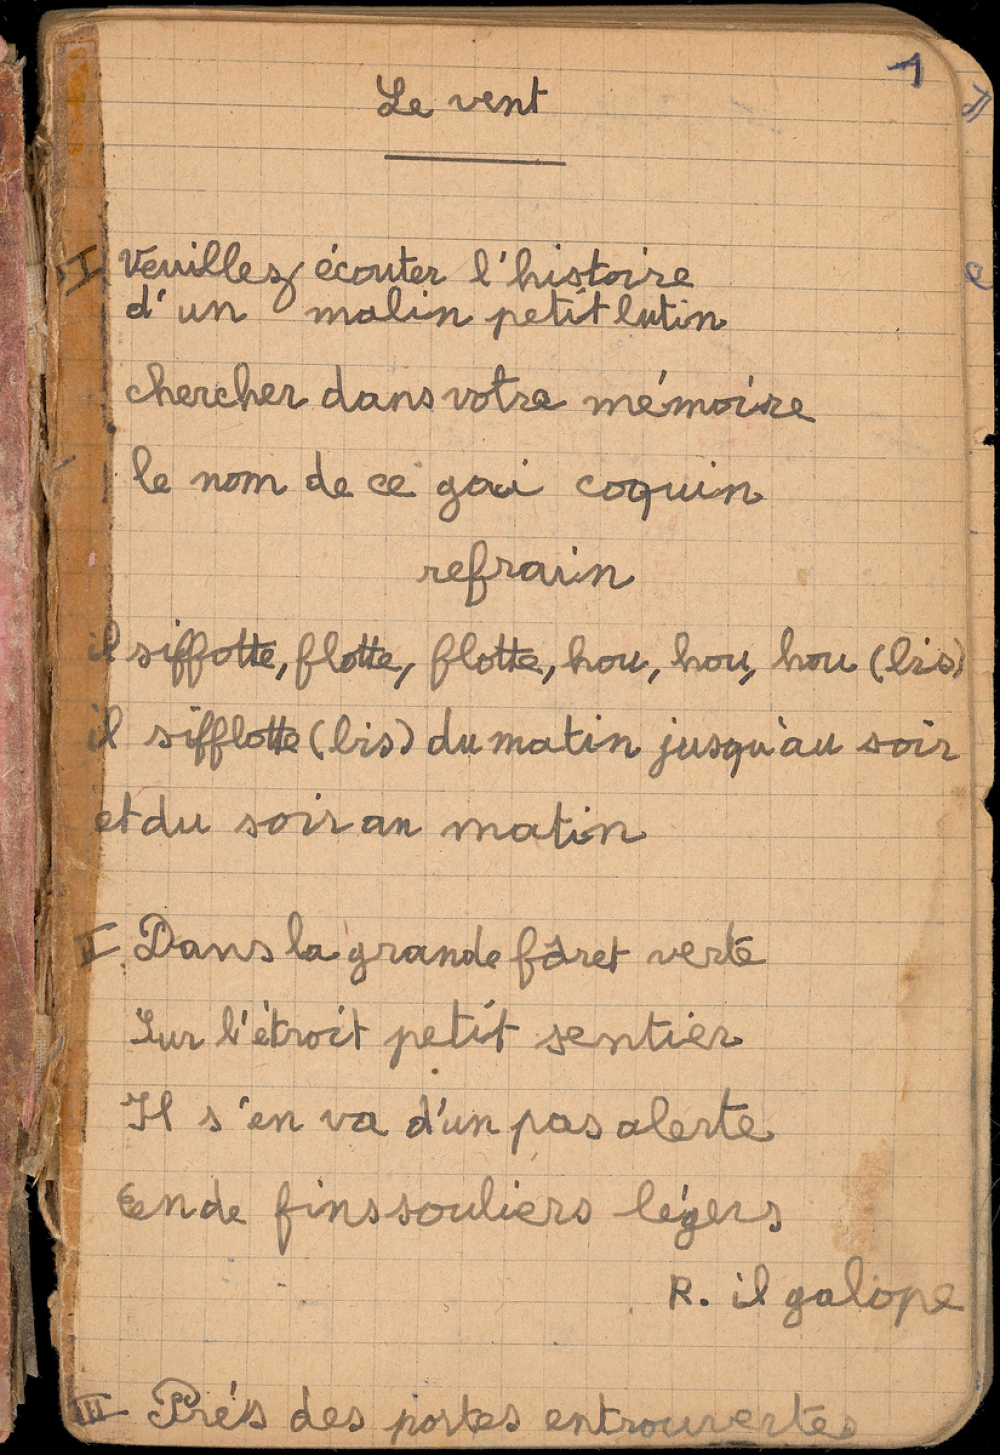 1
Le vent
I Veuillez écouter l'histoire
d'un malin petit lutin
chercher dans votre mémoire
le nom de ce gai coquin
refrain
il siffotte, flotte, flotte, hou, hou, hou (bis)
il sifflotte (bis) du matin jusqu'àu soir
et du soir au matin
II Dans la grande fôret verte
Sur l'étroit petit sentier
Il s'en va d'un pas alerte
En de fins souliers légers
R. il galope
III Prés des portes entrouvertes